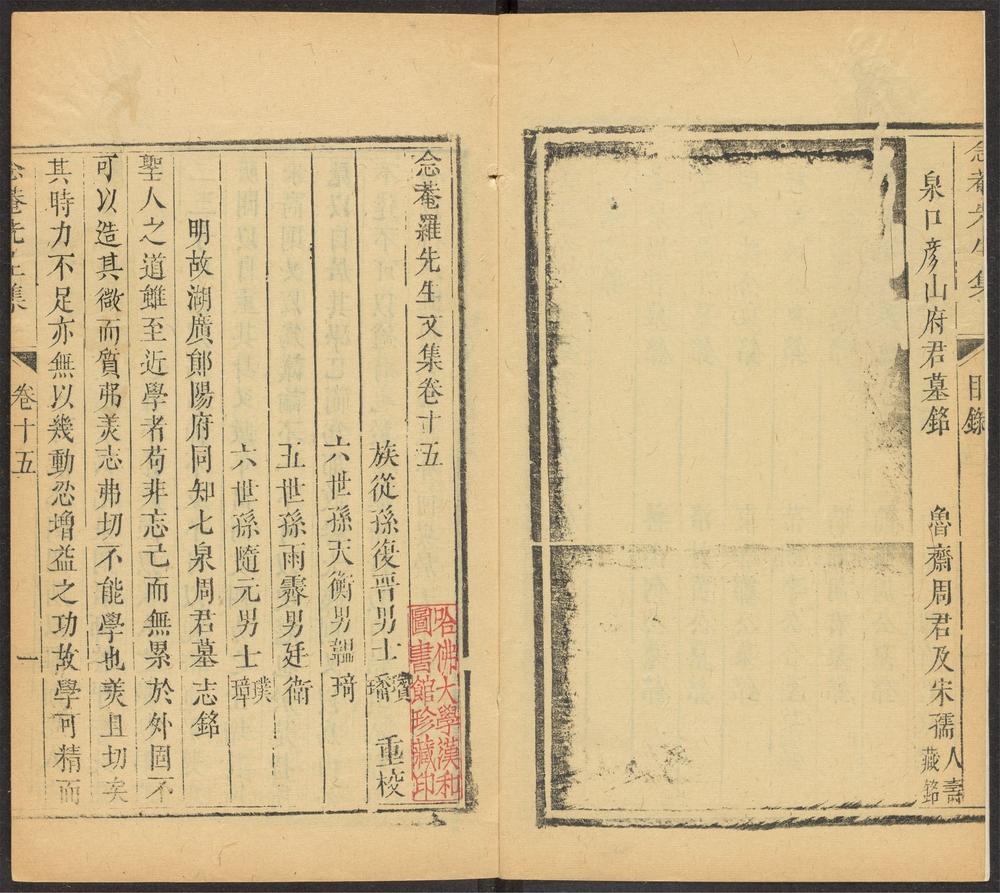 念菴先生集
目錄
泉口彦山府君墓銘
魯齋周君及宋孺人壽藏銘
念菴羅先生文集卷十五
族從孫復晉男士
重校
六世孫天衡男韞琦
五世孫雨霽男廷衛
六世孫隨元男士璞璋
明故湖廣鄖陽府同知七泉周君墓志銘
聖人之道雖至近學者苟非忘己而無累於外固不
可以造其微而質弗羙志弗切不能學也羙且切矣
其時力不足亦無以幾動忍增益之功故學可精而
念菴先生集
卷十五
一
哈佛大學漢和圖書館珍藏印